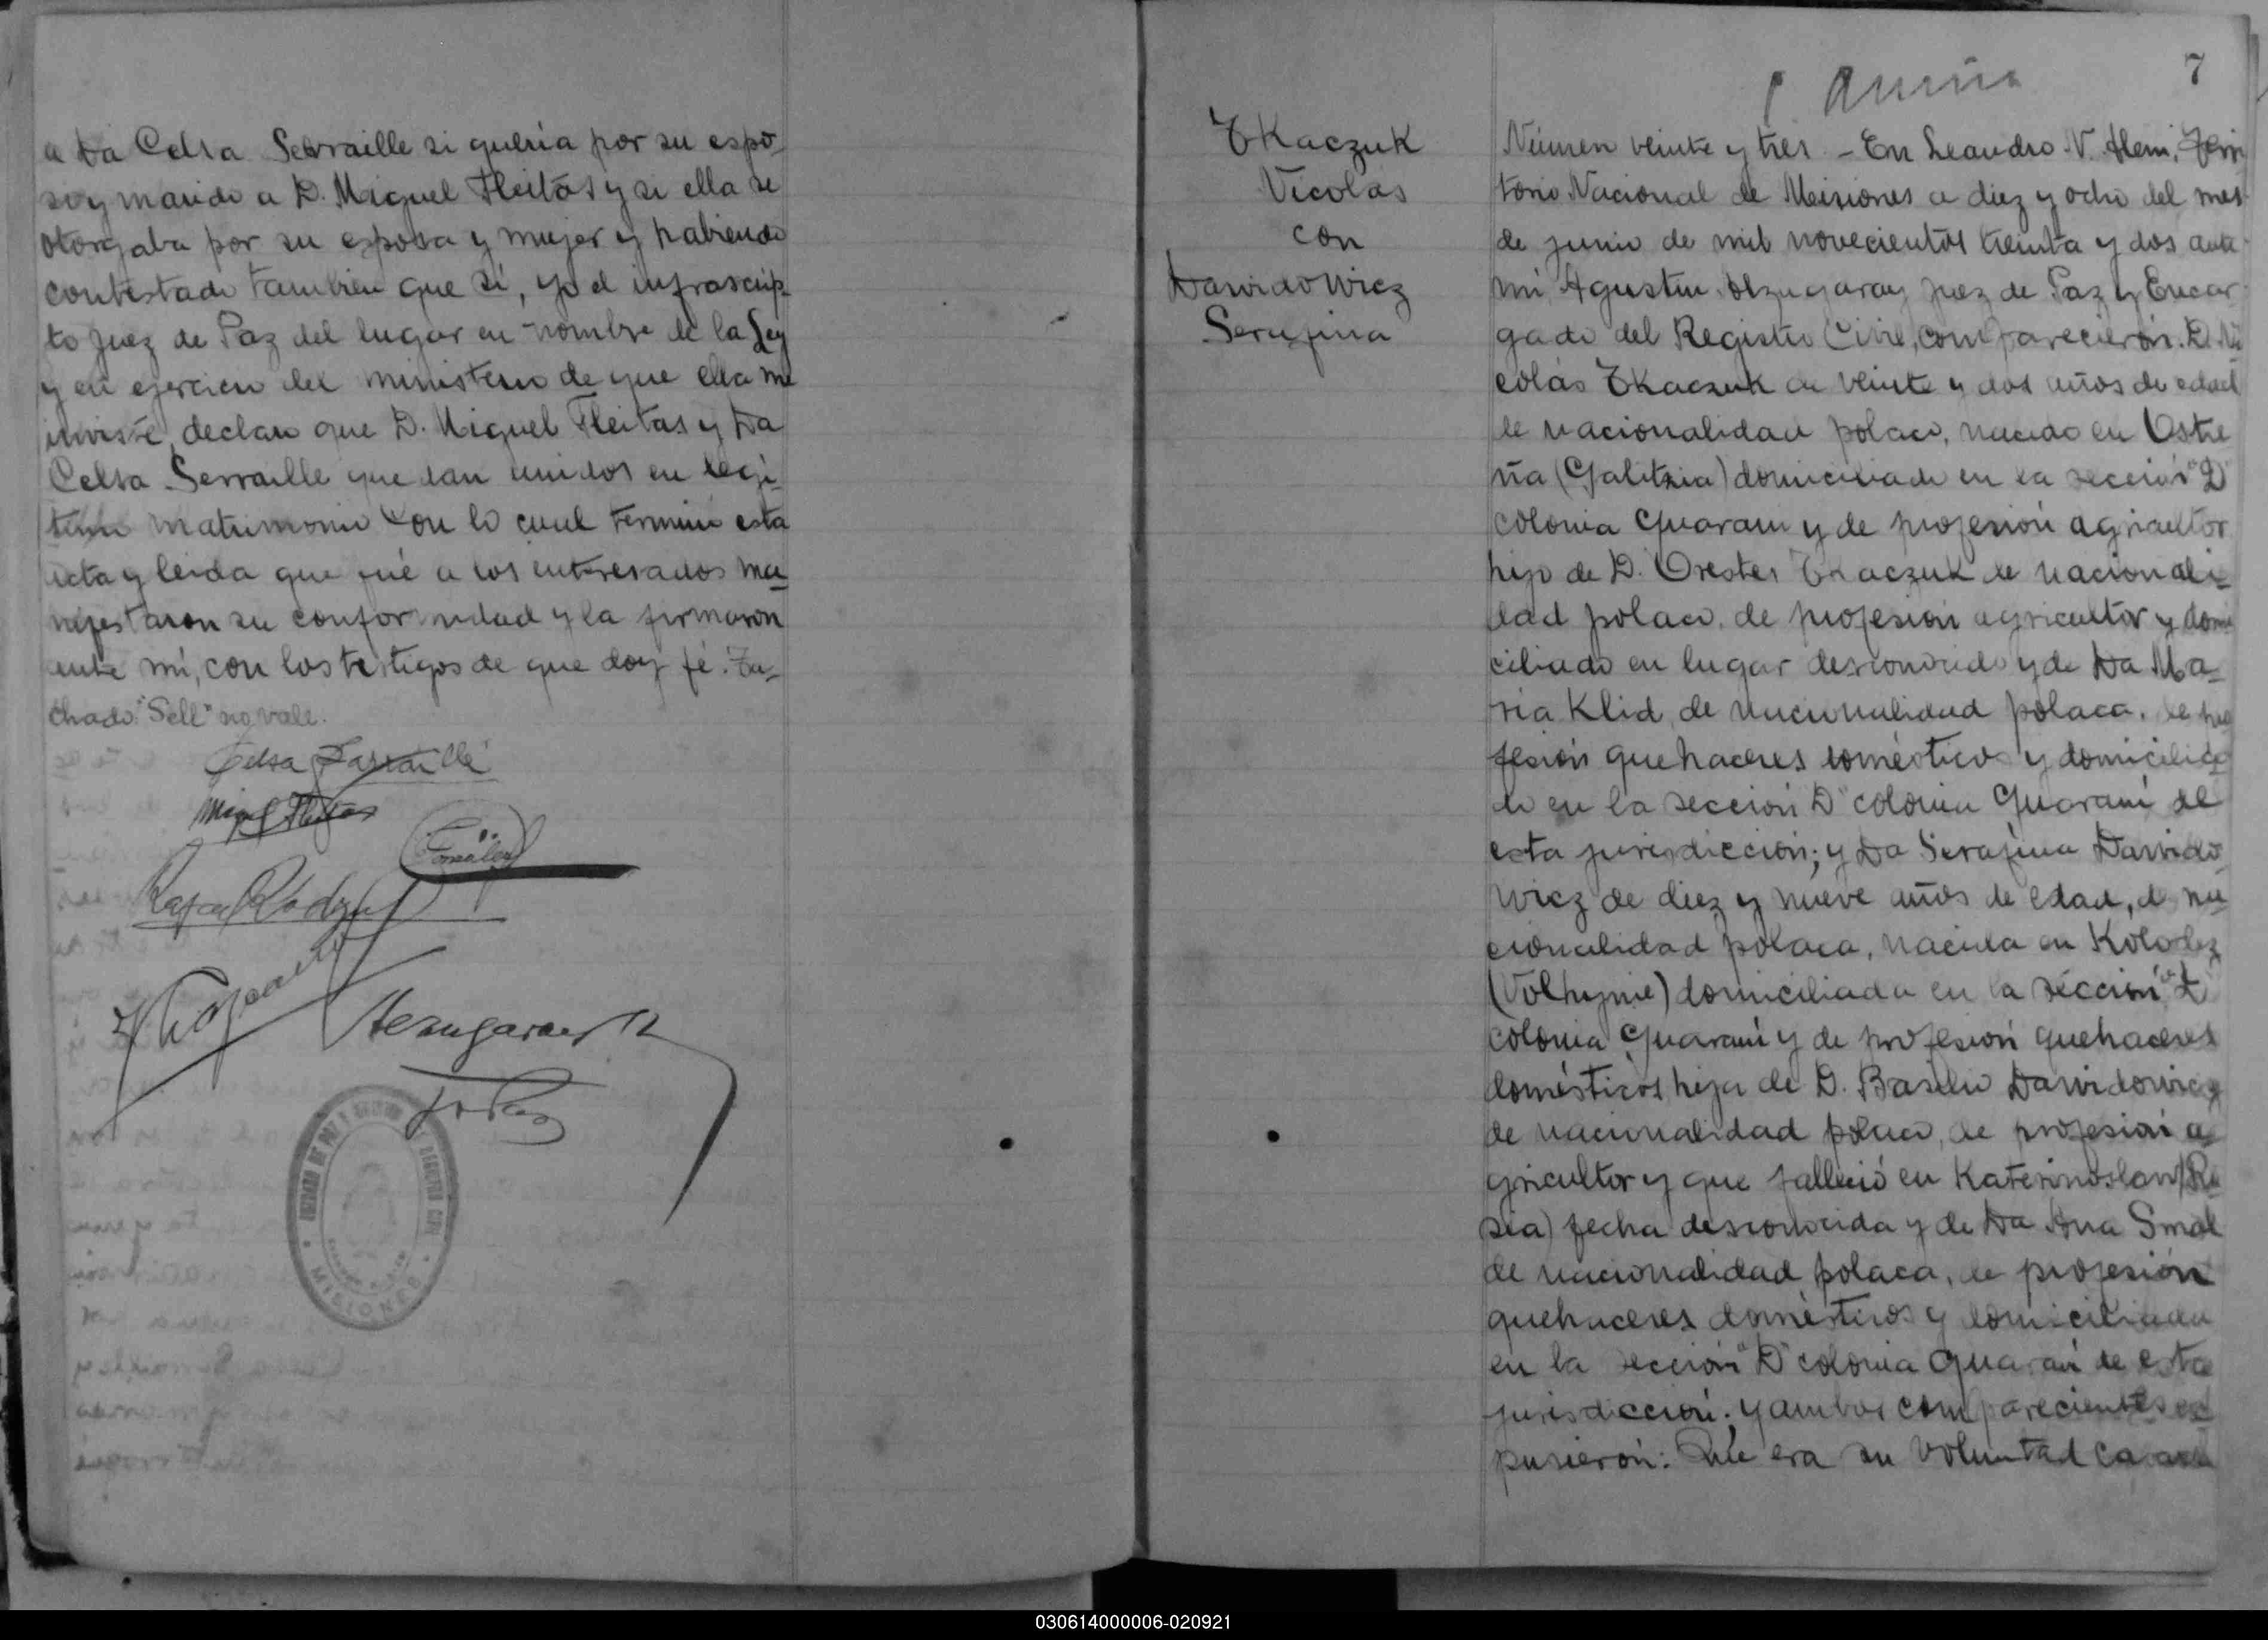 a Da Celsa Serraille si quería por su espo-
so y marido a D. Miguel Fleitas y si ella se
otorgaba por su esposa y mujer y habiendo
contestado tambien que sí, yo el infrascrip-
to Juez de Paz del lugar en nombre de la Ley
y en ejercicio del ministerio de que ella me
inviste, declaro que D. Miguel Fleitas y Da
Celsa Serraille quedan unidos en legí-
timo matrimonio con lo cual terminó esta
acta y leida que fué a los interesados ma-
nifestaron su conformidad y la firmaron
ante mí, con los testigos de que doy fé. Ta-
chado: "Sell" no vale.
Celsa Sarraillé
Miguel Fleitas
González
MISIONES
Tkaczuk
Nicolás
con
Dawidowicz
Serafina
7
Número veinte y tres - En Leandro N. Alem, Terri
torio Nacional de Misiones a diez y ocho del mes
de junio de mil novecientos treinta y dos ante
mí, Agustin Olzugaray Juez de Paz y Encar-
gado del Registro Civil, comparecierón. D. Ni
colás Tkaczuk de veinte y dos años de edad
de nacionalidad polaco, nacido en Ostre
ña (Galitzia) domiciliado en la sección "D"
colonia Guaraní y de profesión agricultor
hijo de D. Orestes Tkaczuk de nacionali-
dad polaco, de profesión agricultor y domi
ciliado en lugar desconocido y de Da Ma-
ría Klid, de nacionalidad polaca, de pro
fesión quehaceres domésticos y domicilia
da en la sección D" colonia Guaraní de
esta jurisdicción; y Da Serafina Dawido-
wicz de diez y nueve años de edad, de na
cionalidad polaca, nacida en Kolodez
(Volhynie) domiciliada en la sección "D"
colonia Guaraní y de profesión quehaceres
domésticos hija de D. Basilio Dawidowicz
de nacionalidad polaco, de profesión a-
gricultor y que falleció en Katerinoslaw (Ru
sia) fecha desconocida y de Da Ana Smal
de nacionalidad polaca, de profesión
quehaceres domésticos y domiciliada
en la sección "D" colonia Guaraní de esta
jurisdicción; y ambos comparecientes ex
pusierón: Que era su voluntad casarse
030614000006-020921